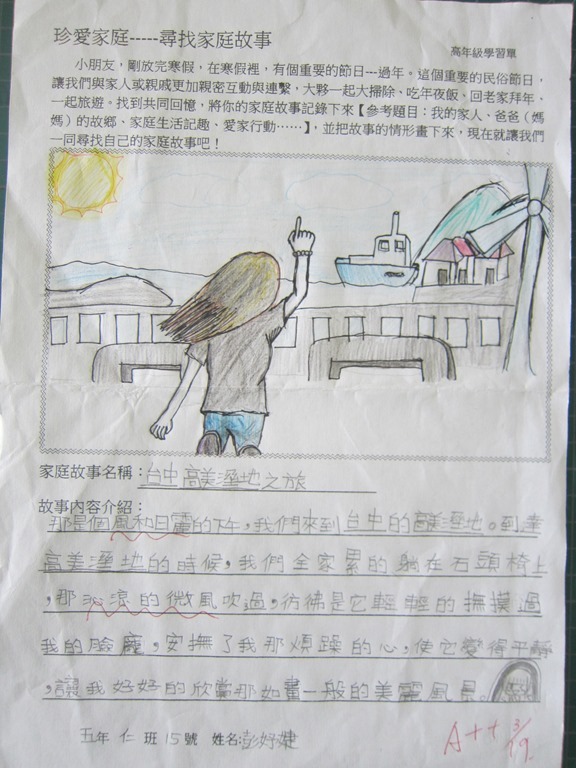 珍愛家庭-----尋找家庭故事
高年級學習單
小朋友，剛放完寒假，在寒假裡，有個重要的節日---過年。這個重要的民俗節日，
讓我們與家人或親戚更加親密互動與連繫，大夥一起大掃除、吃年夜飯、回老家拜年、
一起旅遊。找到共同回憶，將你的家庭故事記錄下來【參考題目：我的家人、爸爸（媽
媽）的故鄉、家庭生活記趣、愛家行動……】，並把故事的情形畫下來，現在就讓我們
一同尋找自己的家庭故事吧！
家庭故事名稱：台中高美溼地之旅
故事內容介紹：
那是個風和日麗的下午，我們來到台中的高美溼地。到達
高美溼地的時候，我們全家累的躺在石頭椅上
，那沁涼的微風吹過，彷彿是它輕輕的撫摸過
我的臉龐，安撫了我那煩躁的心，使它變得平靜
，讓我好好的欣賞那如畫一般的美麗風景。
五年 仁 班 15 號 姓名:彭妤婕
A++ 3/19.